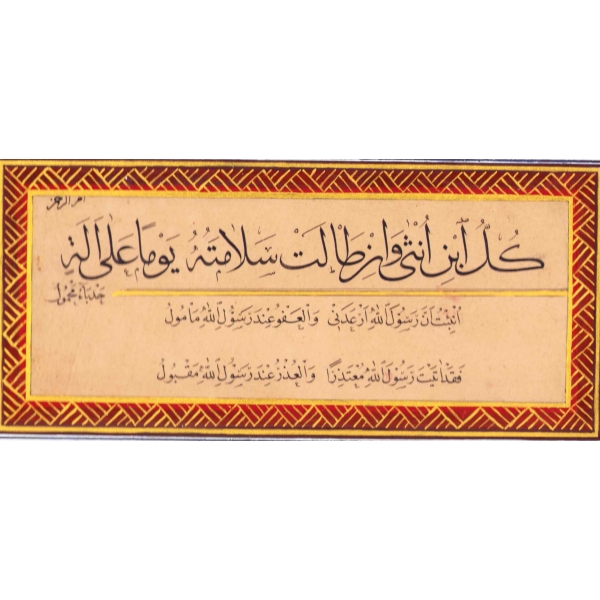 كُلُّ ٱبْنِ اُنْثٰى وَاِنْ طَالَتْ سَلَامَتُهُ يَوْمًا عَلٰى اٰلَةٍ
حَدْبَاءَ مَحْمُولُ
اُنْبِئْتُ اَنَّ رَسُولَ اللّٰهِ اَوْعَدَنِي وَالْعَفْوُ عِنْدَ رَسُولِ اللّٰهِ مَأْمُولُ
فَقَدْ اَتَيْتُ رَسُولَ اللّٰهِ مُعْتَذِرًا وَالْعُذْرُ عِنْدَ رَسُولِ اللّٰهِ مَقْبُولُ